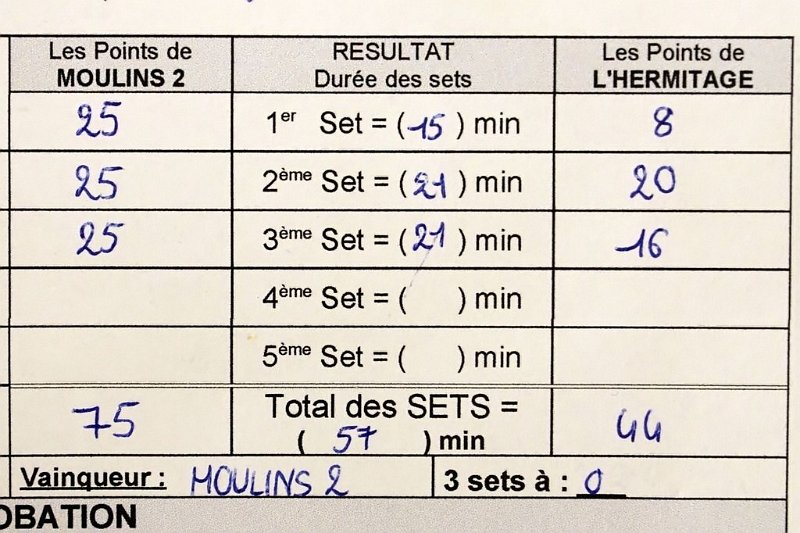 Les Points de MOULINS 2 RESULTAT Durée des sets Les Points de L'HERMITAGE
25 1er Set = ( 15 ) min 8
25 2ème Set = ( 21 ) min 20
25 3ème Set = ( 21 ) min 16
4ème Set = ( ) min
5ème Set = ( ) min
75 Total des SETS = ( 57 ) min 44
Vainqueur : MOULINS 2 3 sets à : 0
OBATION